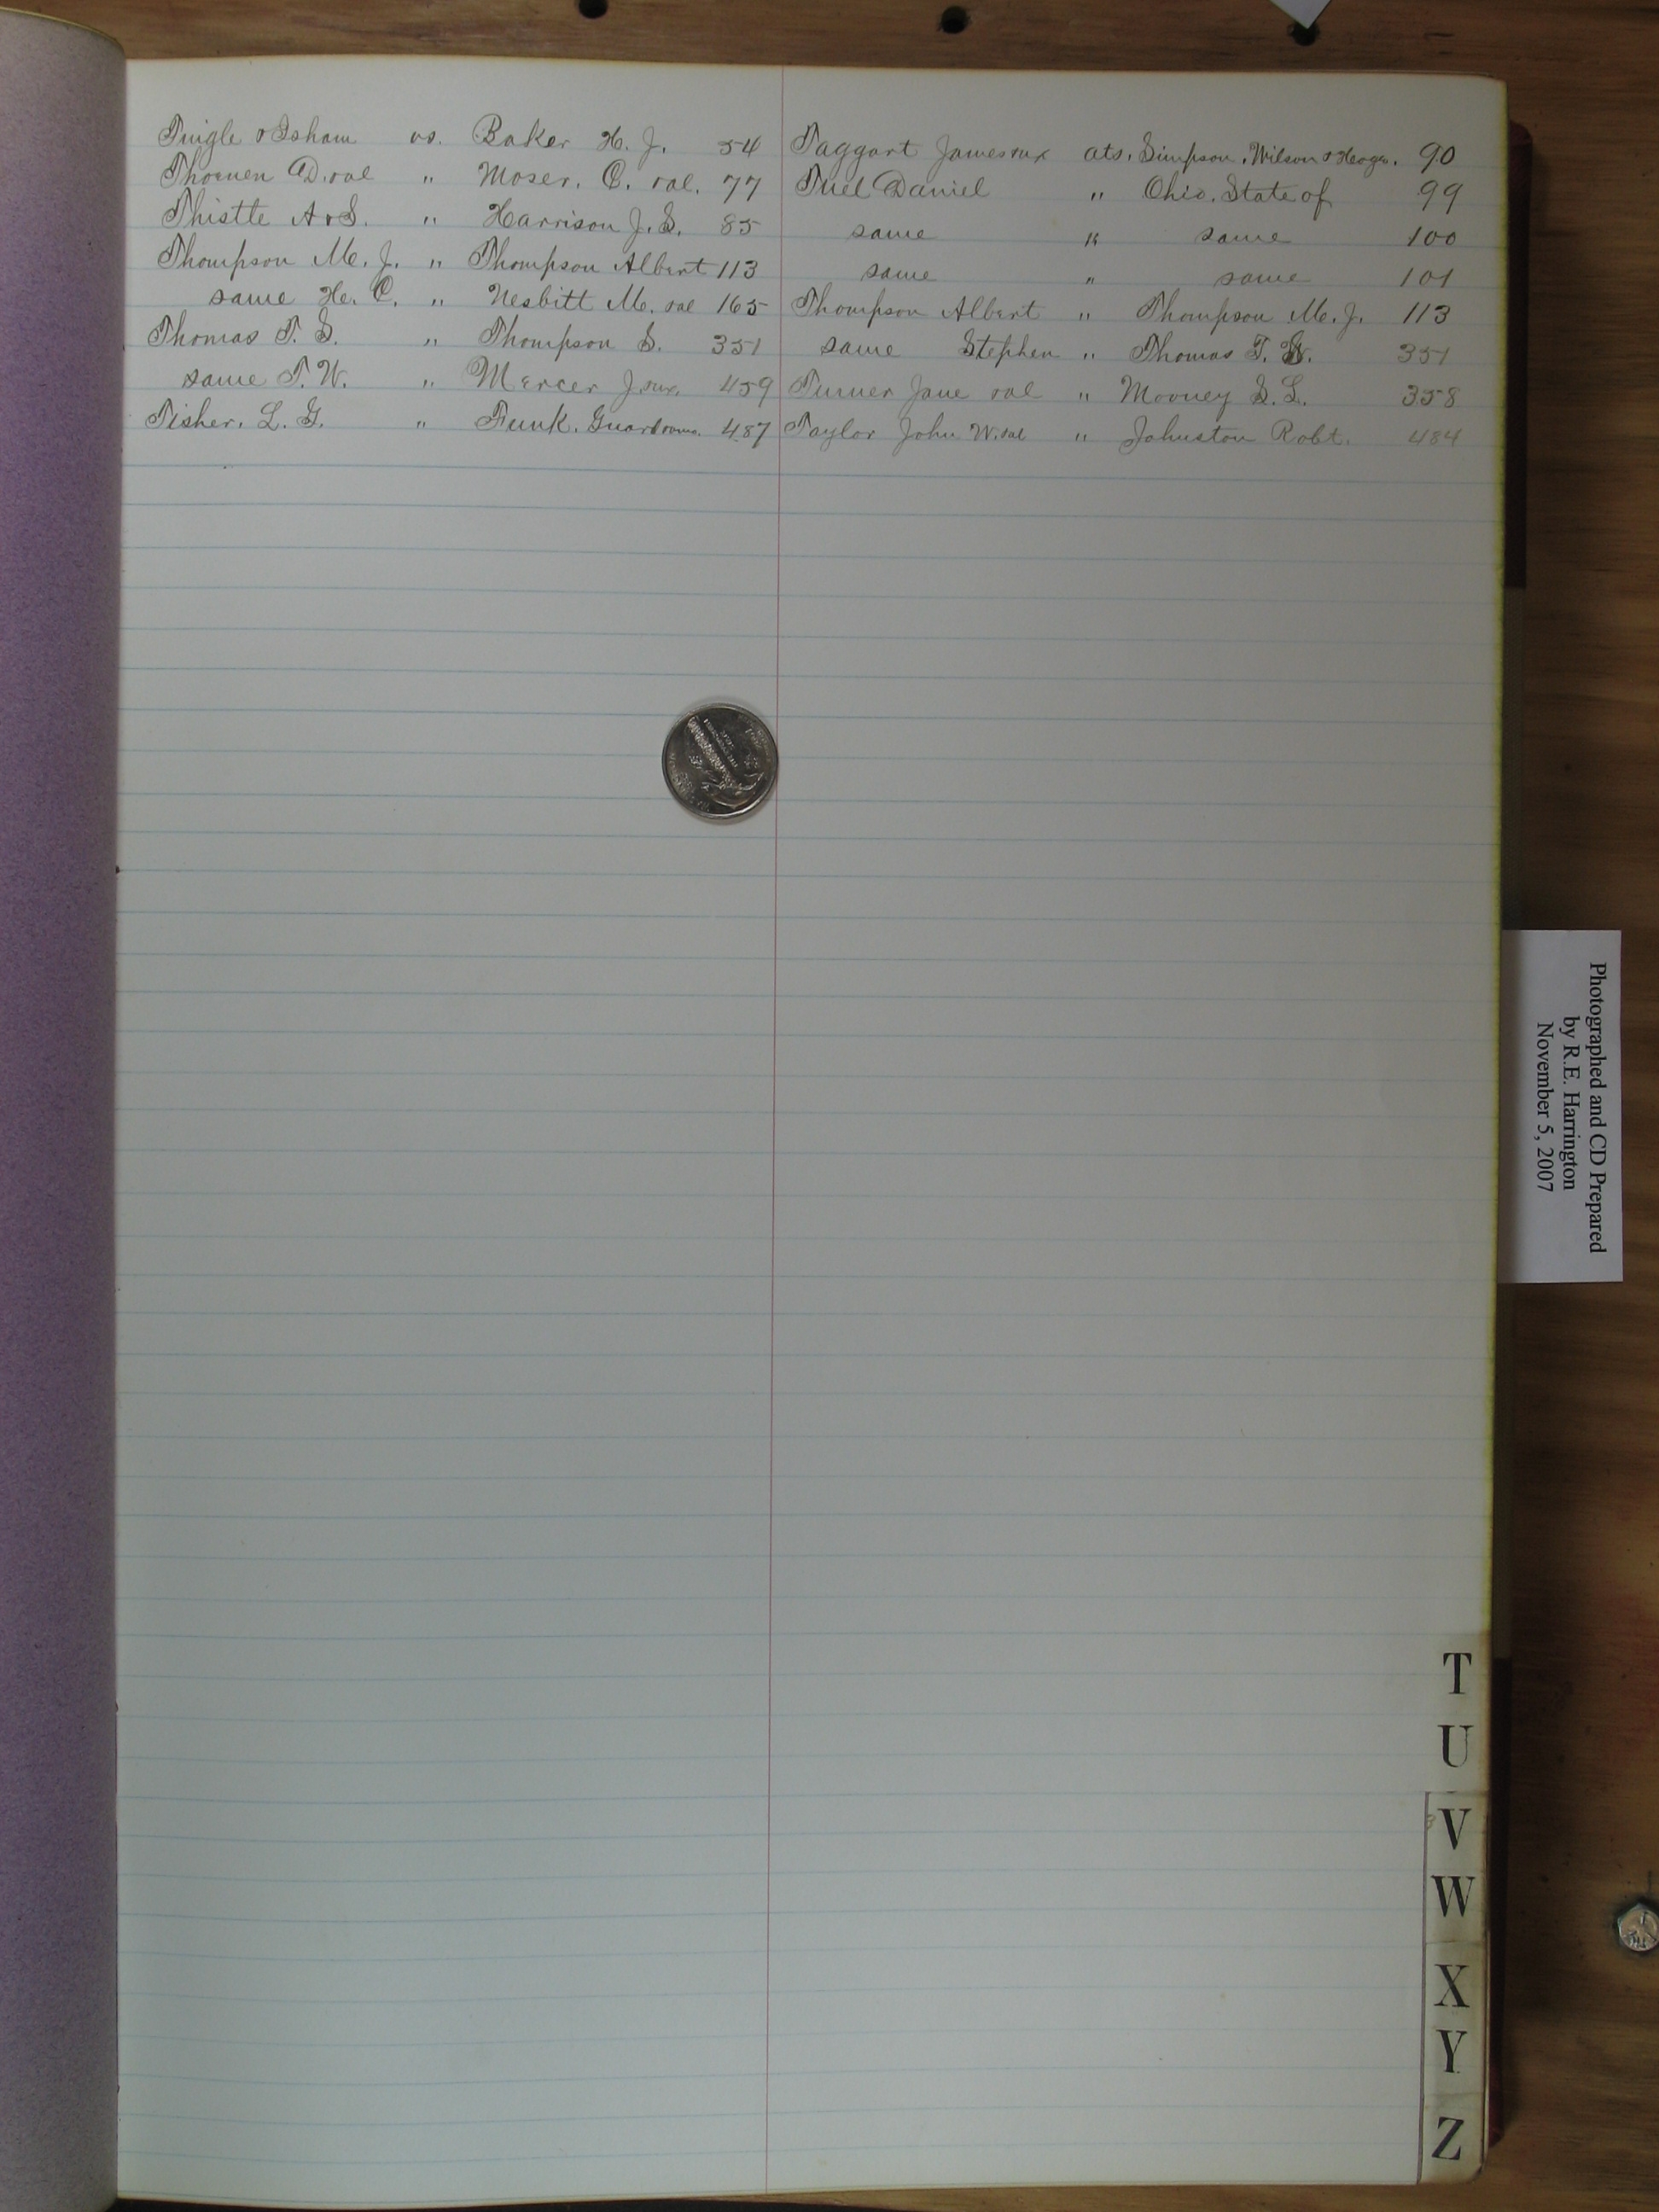 Tingle & Isham vs. Baker H. J. 54
Thoenen D. &al " Moser. C. &al. 77
Thistle A & S. " Harrison J. S. 85
Thompson M. J. " Thompson Albert 113
same H. C. " Nesbitt M. &al 165
Thomas T. S. " Thompson S. 351
same T. W. " Mercer J. &ux. 459
Tisher. L. G. " Funk. 487
Taggart James &ux ats. Simpson, Wilson & 90
Tuel Daniel " Ohio. State of 99
same " same 100
same " same 101
Thompson Albert " Thompson M. J. 113
same Stephen " Thomas T. S. 351
Turner Jane &al " Mooney S. L. 358
Taylor John W. &al " Johnston Robt. 484
Photographed and CD Prepared
by R.E. Harrington
November 5, 2007
T
U
V
W
X
Y
Z